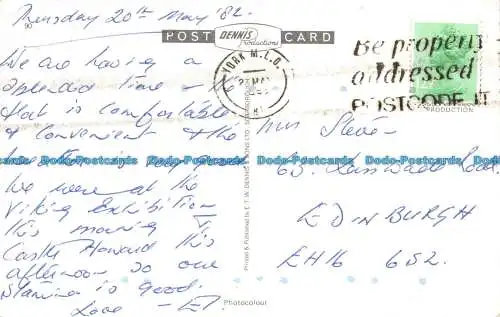 Thursday 20th May '82.
90
POST CARD
DENNIS
Productions
YORK M.L.O.
MAY
Be properly
addressed
POSTCODE IT
We are having a
splendid time - the
flat is comfortable
& convenient & the
weather is very good
We were at the
Viking Exhibition
this morning &
Castle Howard this
afternoon so our
stamina is good.
Love -
Mrs Steve
63.
EDINBURGH
EH16 6S2.
Printed & Published by E. T. W. DENNIS & SONS LTD. SCARBOROUGH
Photocolour
PRODUCTION
Dodo-Postcards.com Dodo-Postcards.com Dodo-Postcards.com Dodo-Postcards.com